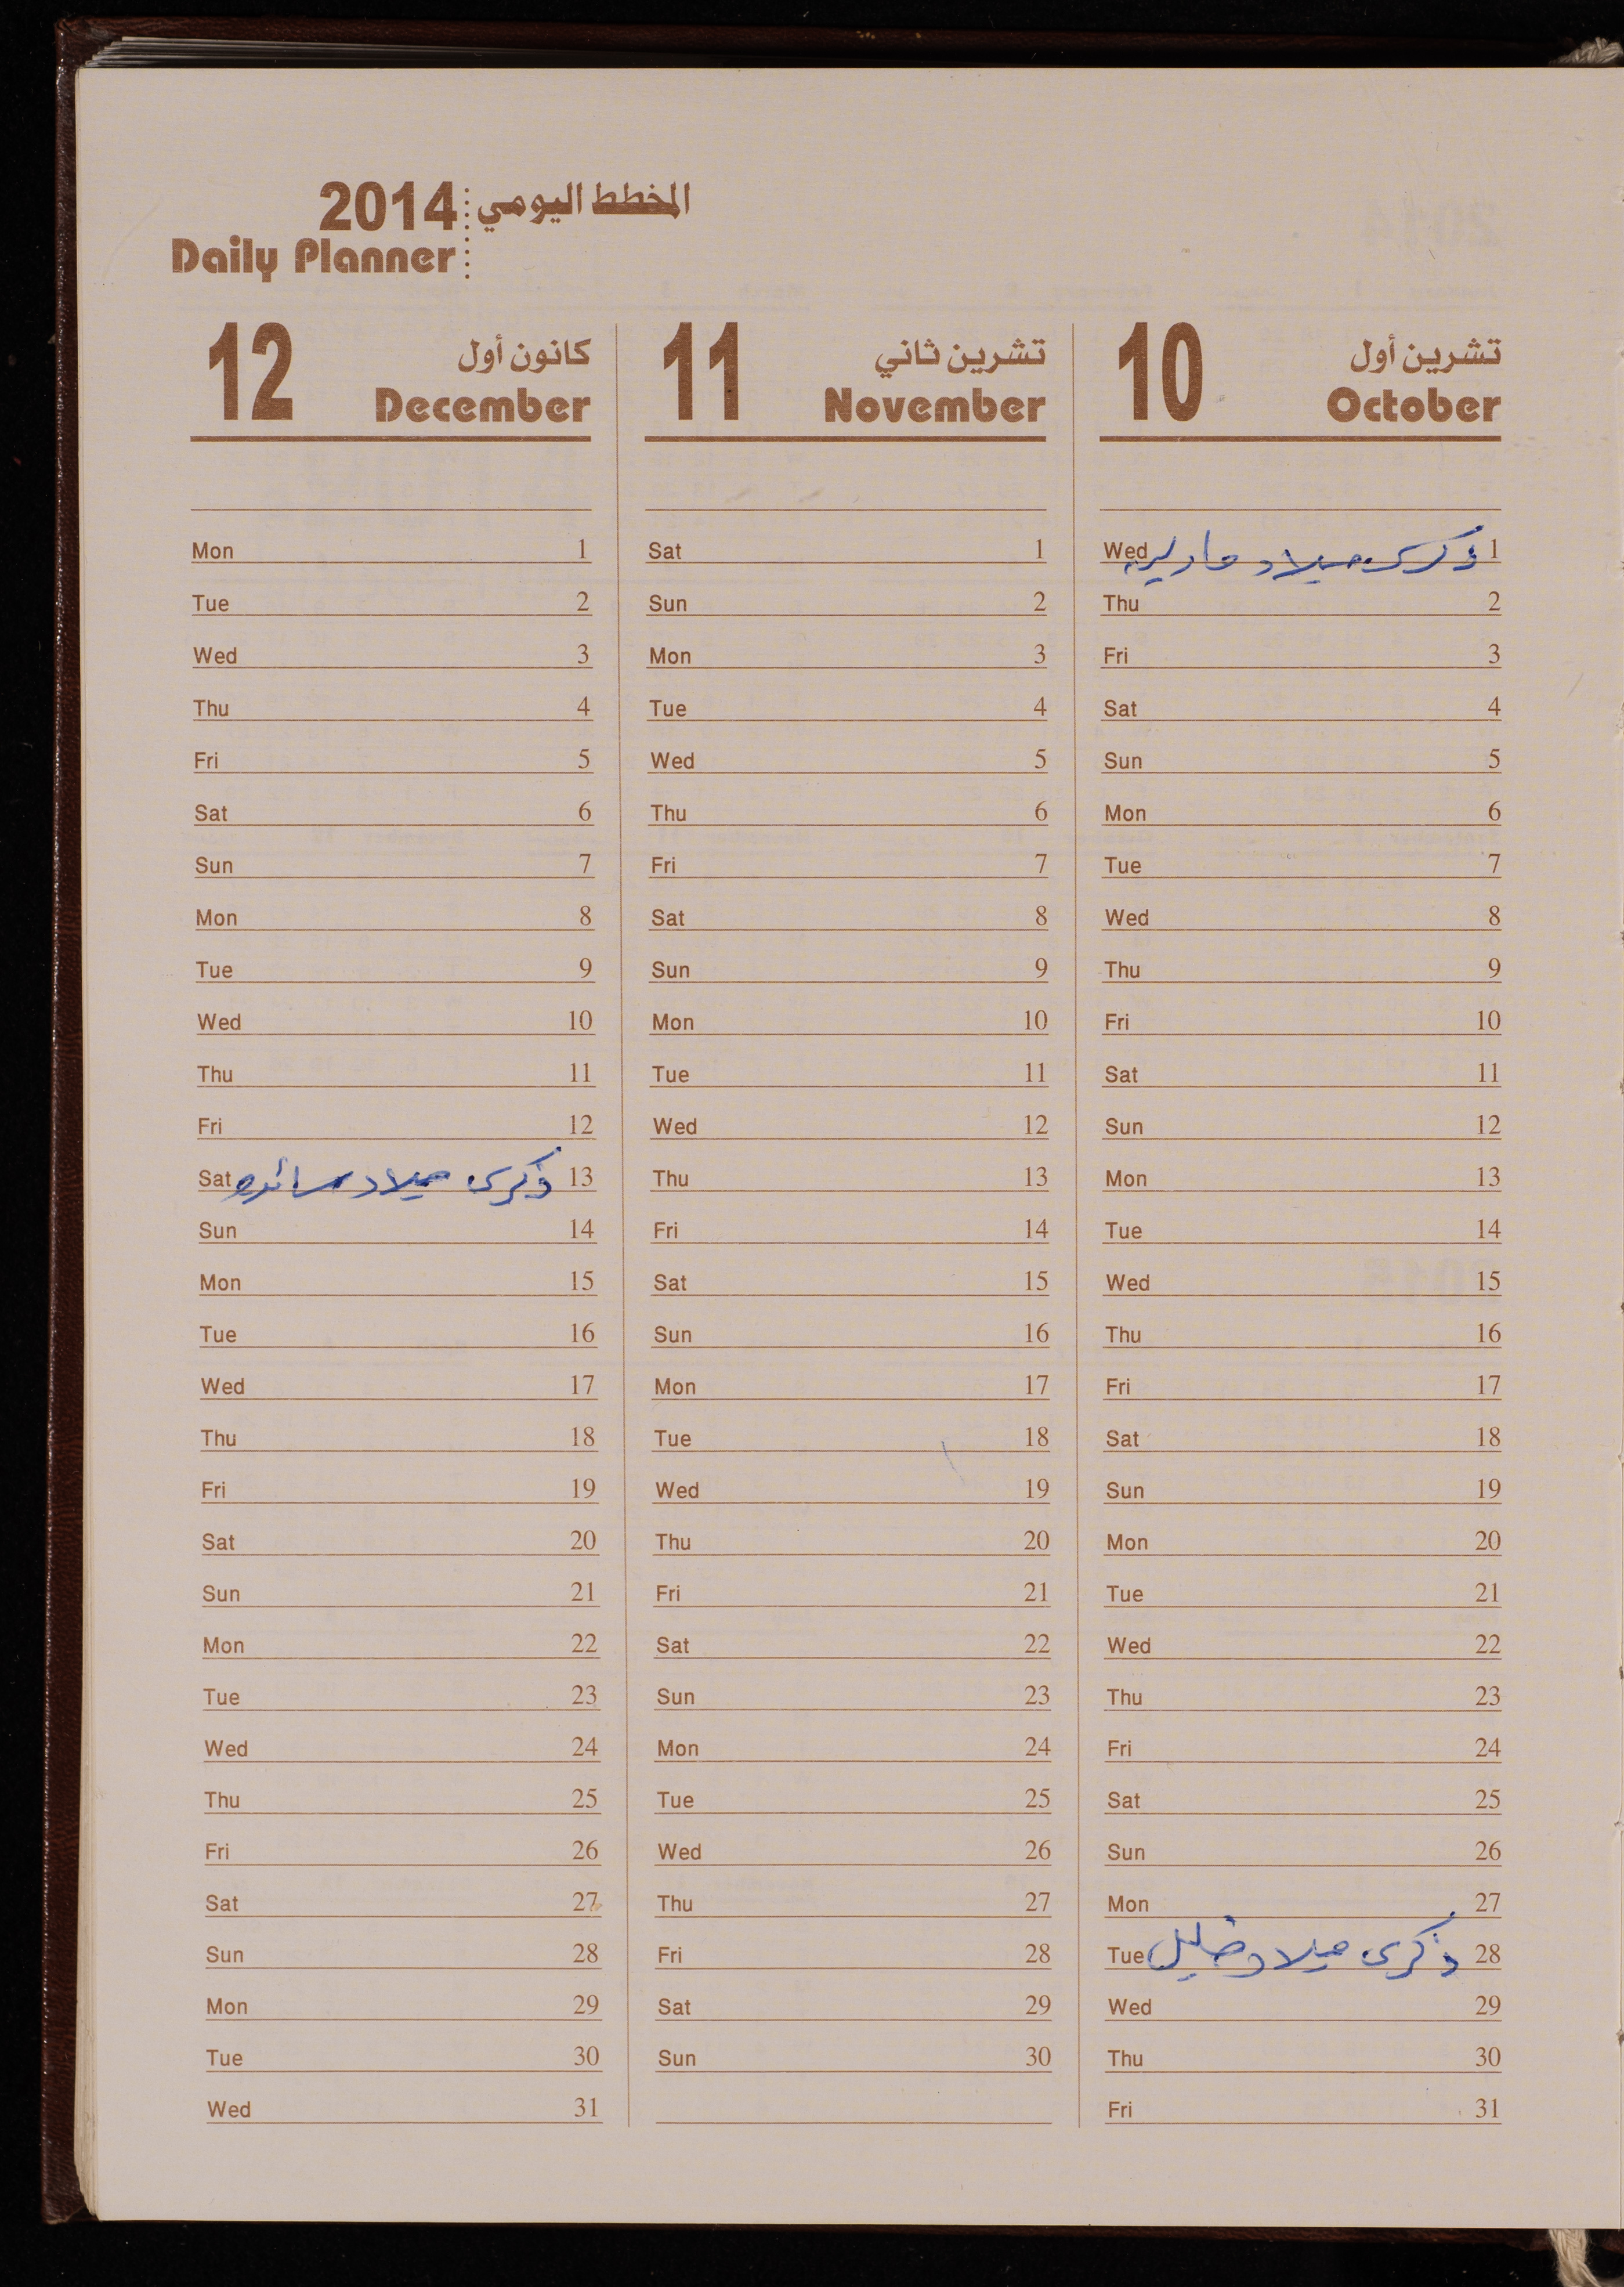 2014 المخطط اليومي
Daily Planner
10 تشرين أول
October
Wed ذكرى ميلاد 1
Thu 2
Fri 3
Sat 4
Sun 5
Mon 6
Tue 7
Wed 8
Thu 9
Fri 10
Sat 11
Sun 12
Mon 13
Tue 14
Wed 15
Thu 16
Fri 17
Sat 18
Sun 19
Mon 20
Tue 21
Wed 22
Thu 23
Fri 24
Sat 25
Sun 26
Mon 27
Tue ذكرى ميلاد خليل 28
Wed 29
Thu 30
Fri 31
11 تشرين ثاني
November
Sat 1
Sun 2
Mon 3
Tue 4
Wed 5
Thu 6
Fri 7
Sat 8
Sun 9
Mon 10
Tue 11
Wed 12
Thu 13
Fri 14
Sat 15
Sun 16
Mon 17
Tue 18
Wed 19
Thu 20
Fri 21
Sat 22
Sun 23
Mon 24
Tue 25
Wed 26
Thu 27
Fri 28
Sat 29
Sun 30
12 كانون أول
December
Mon 1
Tue 2
Wed 3
Thu 4
Fri 5
Sat 6
Sun 7
Mon 8
Tue 9
Wed 10
Thu 11
Fri 12
Sat ذكرى ميلاد سائده 13
Sun 14
Mon 15
Tue 16
Wed 17
Thu 18
Fri 19
Sat 20
Sun 21
Mon 22
Tue 23
Wed 24
Thu 25
Fri 26
Sat 27
Sun 28
Mon 29
Tue 30
Wed 31